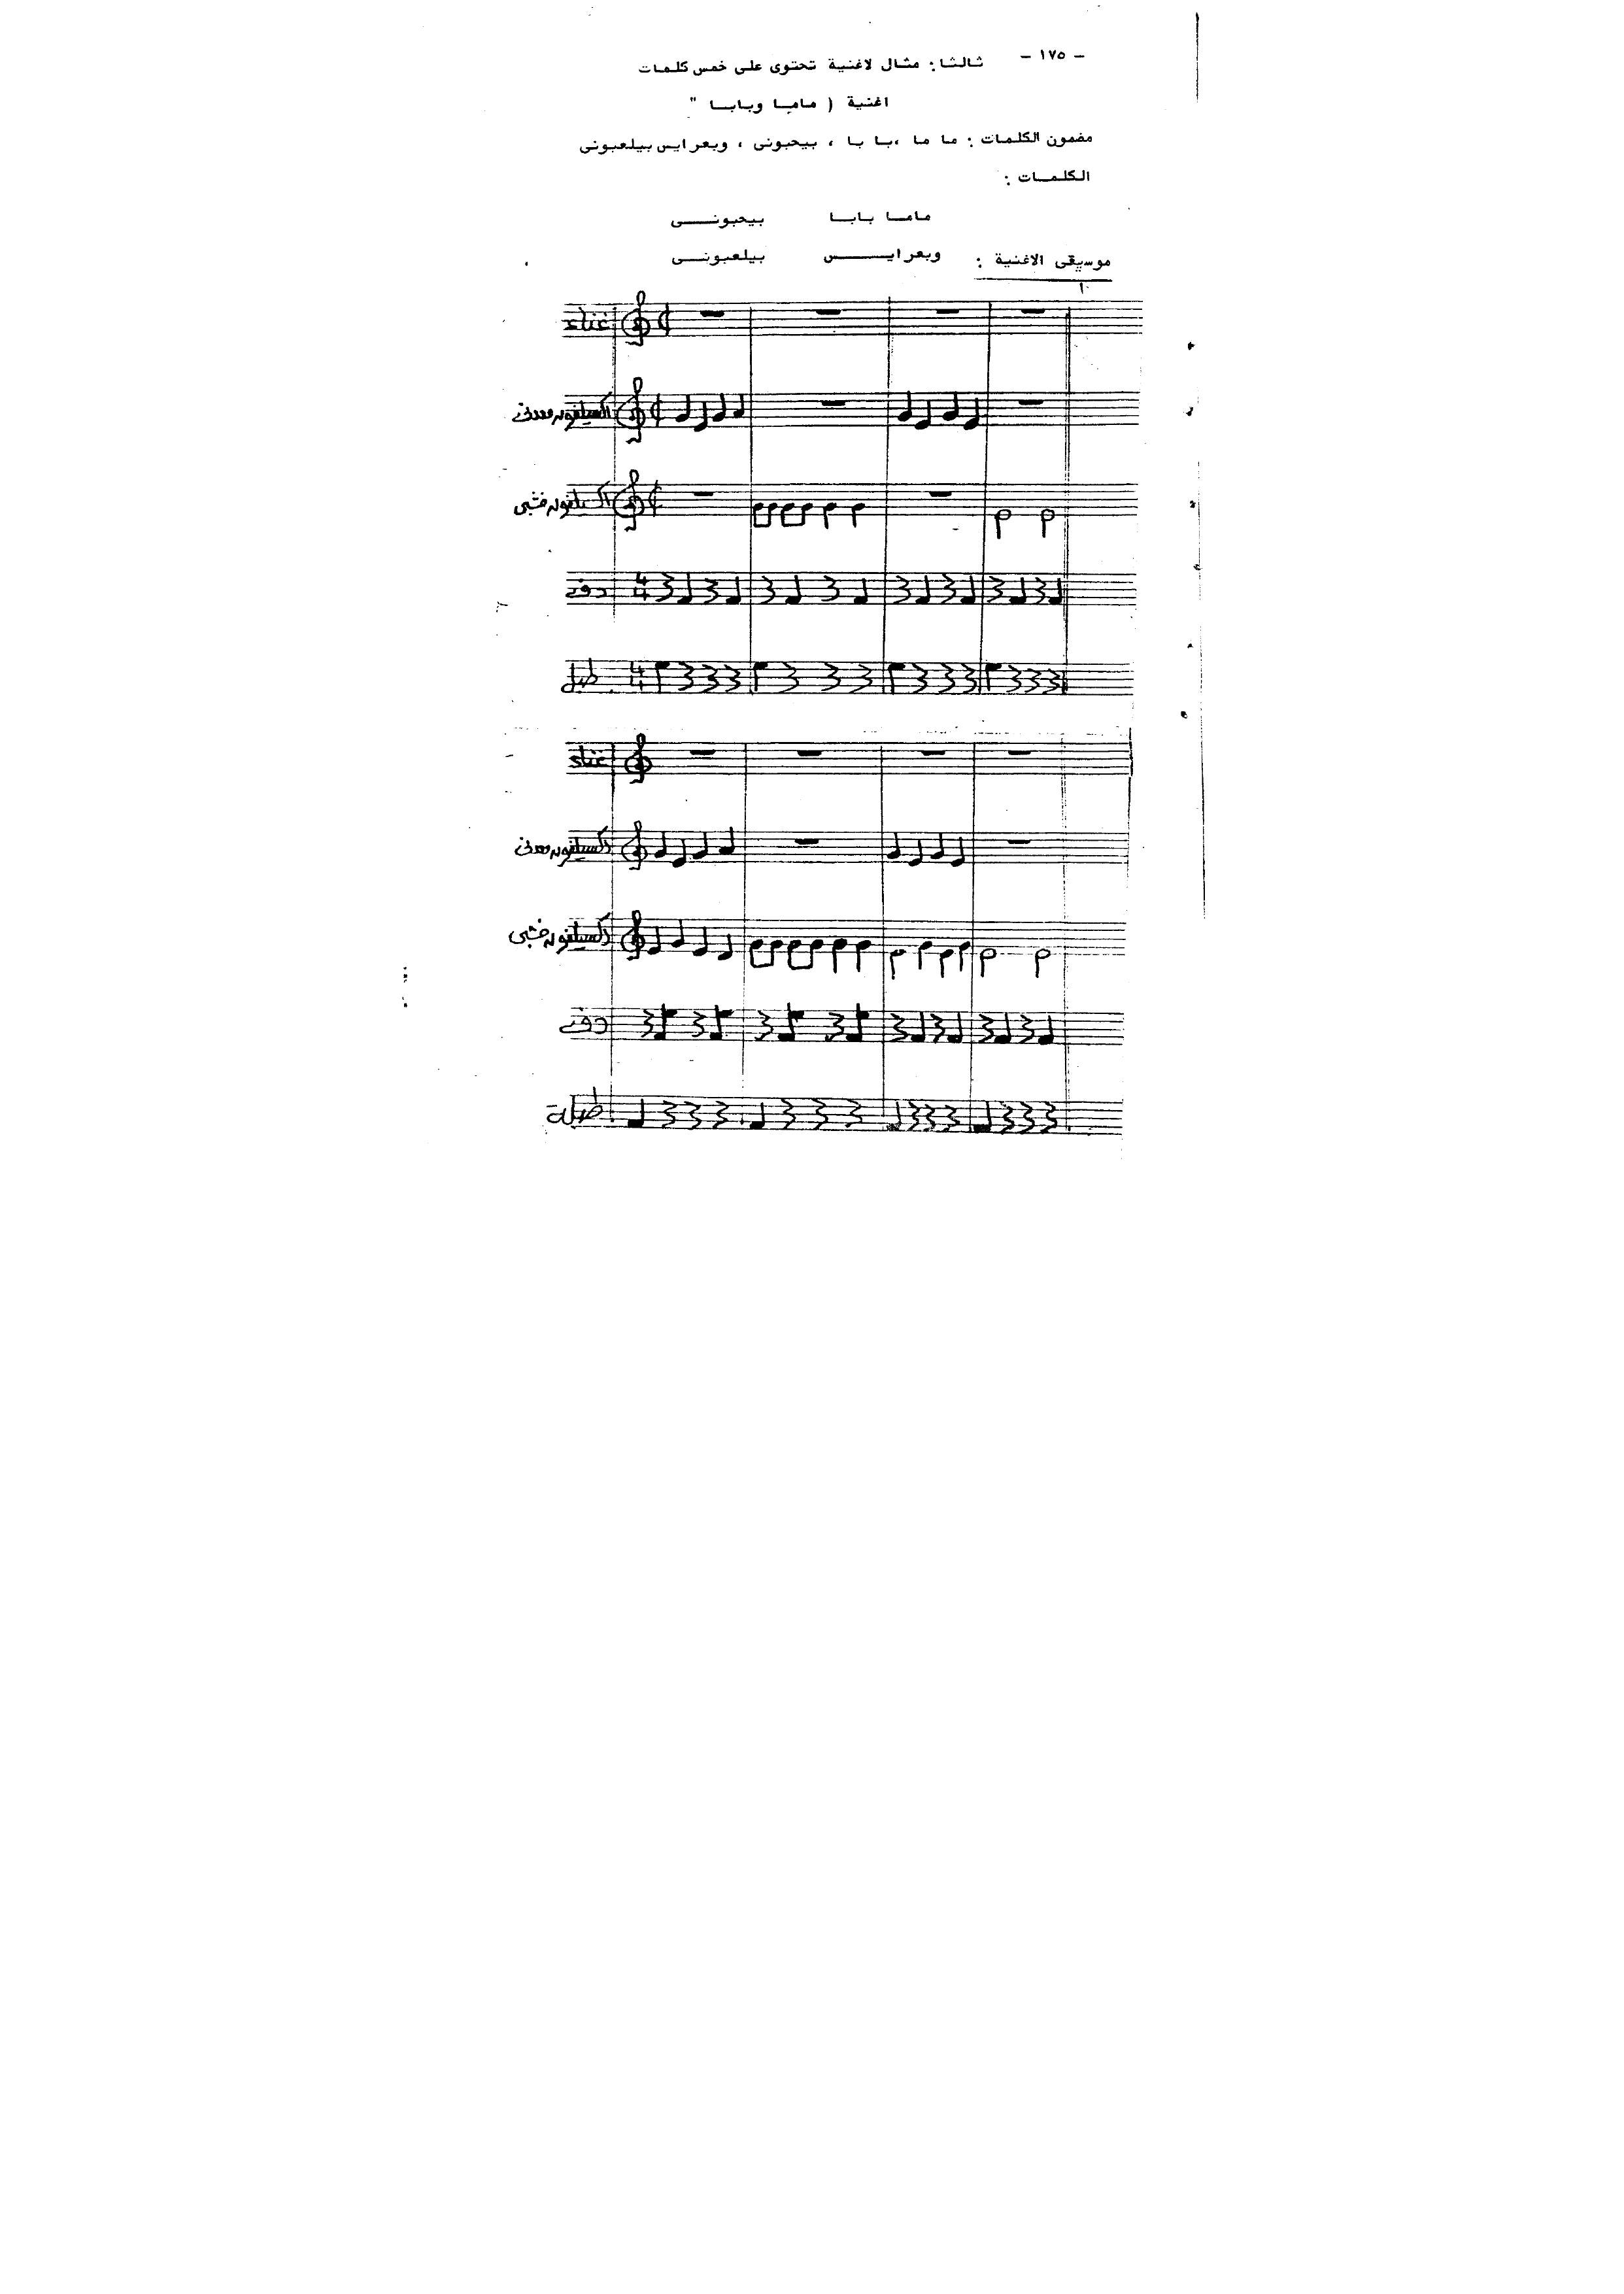 - ١٧٥ -
ثالثا: مثال لاغنية تحتوى على خمس كلمات
اغنية ( ماما وبابا "
مضمون الكلمات : ما ما ،با با ، بيحبونى ، وبعرايس بيلعبونى
الكلمات :
ماما بابا بيحبونى
وبعرايس بيلعبونى
موسيقى الاغنية :
غناء
اكسيلفون معدنى
اكسيلفون خشبى
دف
4/4
طبل
4/4
غناء
اكسيلفون معدنى
اكسيلفون خشبى
دف
طبلة